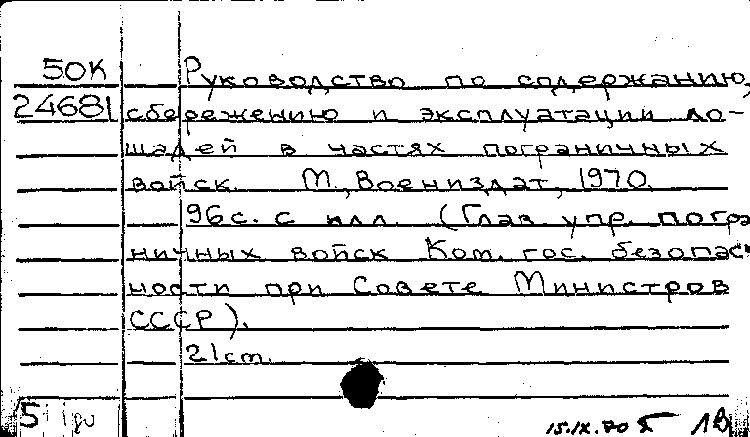 50К Руководство по содержанию,
24681 сбережению и эксплуатации ло-
шадей в частях пограничных
войск. М., Воениздат, 1970.
96 с. с илл. (Глав. упр. погра
ничных войск Ком. гос. безопас
ности при Совете Министров
СССР).
21 cm.
5
15.IX.70 1В